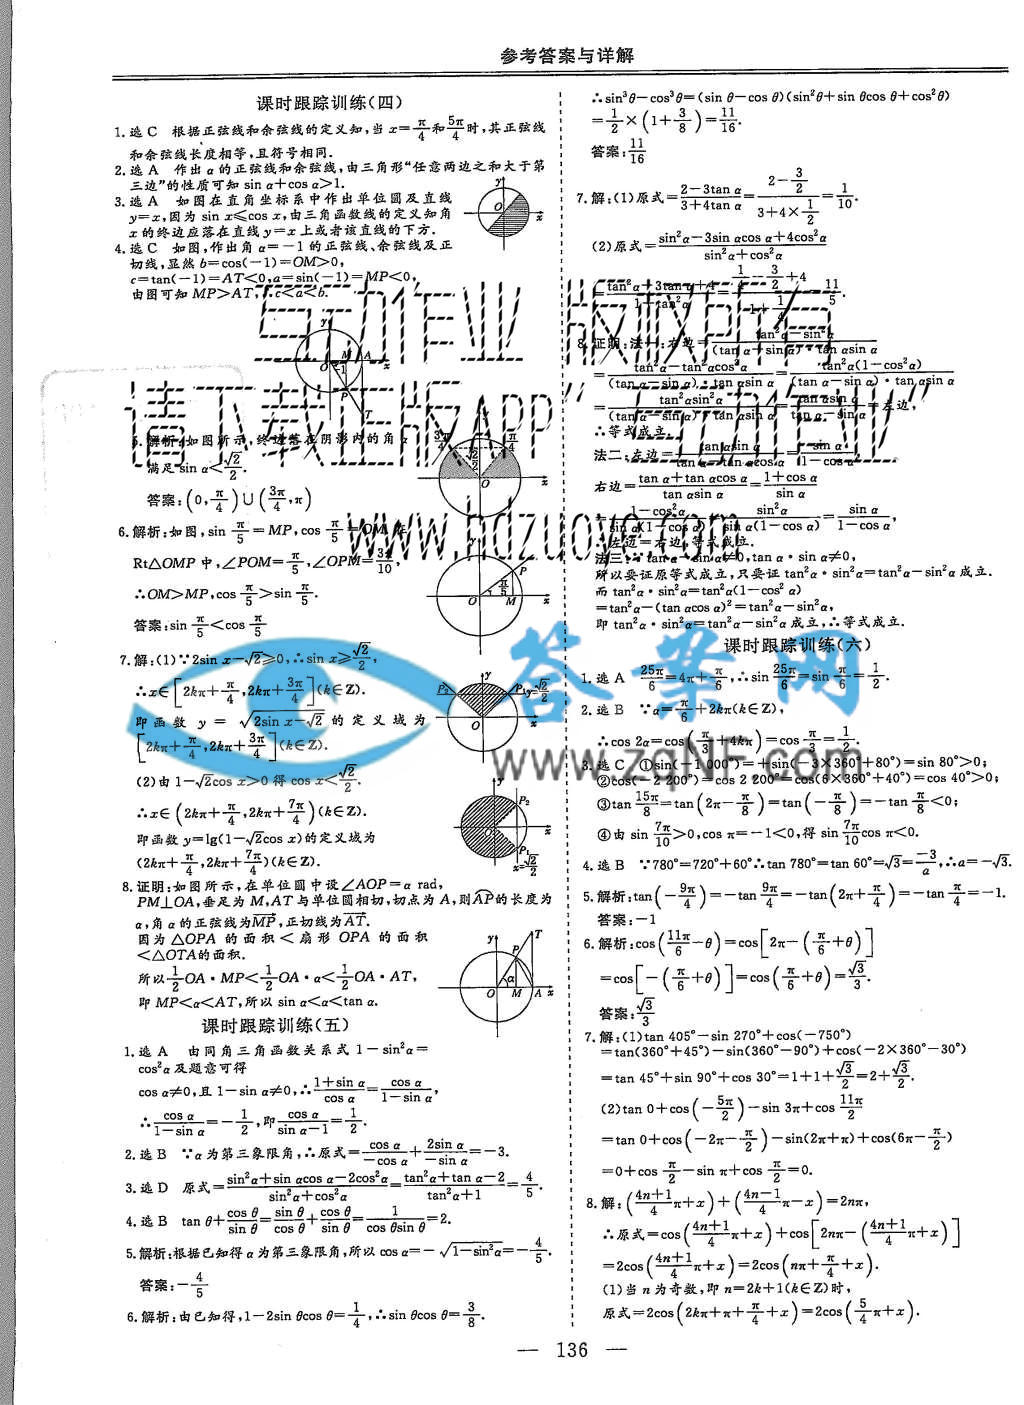 参考答案与详解
课时跟踪训练(四)
1.选C 根据正弦线和余弦线的定义知,当 x=π/4和5π/4时,其正弦线
和余弦线长度相等,且符号相同.
2.选A 作出 α 的正弦线和余弦线,由三角形“任意两边之和大于第
三边”的性质可知 sin α+cos α>1.
3.选A 如图在直角坐标系中作出单位圆及直线
y=x,因为 sin x⩽cos x,由三角函数线的定义知角
x 的终边应落在直线 y=x 上或者该直线的下方.
4.选C 如图,作出角 α=-1 的正弦线、余弦线及正
切线,显然 b=cos(-1)=OM>0,
c=tan(-1)=AT<0,a=sin(-1)=MP<0,
由图可知 MP>AT,∴c<a<b.
5.解析:如图所示,终边落在阴影内的角 α
满足 sin α<√2/2.
答案:(0,π/4)∪(3π/4,π)
6.解析:如图,sin π/5=MP,cos π/5=OM,在
Rt△OMP 中,∠POM=π/5,∠OPM=3π/10,
∴OM>MP,cos π/5>sin π/5.
答案:sin π/5<cos π/5
7.解:(1)∵2sin x-√2⩾0,∴sin x⩾√2/2,
∴x∈[2kπ+π/4,2kπ+3π/4](k∈Z).
即函数 y = √(2sin x-√2) 的定义域为
[2kπ+π/4,2kπ+3π/4](k∈Z).
(2)由 1-√2cos x>0 得 cos x<√2/2.
∴x∈(2kπ+π/4,2kπ+7π/4)(k∈Z).
即函数 y=lg(1-√2cos x)的定义域为
(2kπ+π/4,2kπ+7π/4)(k∈Z).
8.证明:如图所示,在单位圆中设∠AOP=α rad,
PM⊥OA,垂足为 M,AT 与单位圆相切,切点为 A,则AP的长度为
α,角 α 的正弦线为MP,正切线为AT.
因为 △OPA 的面积<扇形 OPA 的面积
<△OTA的面积.
所以1/2OA·MP<1/2OA·α<1/2OA·AT,
即 MP<α<AT,所以 sin α<α<tan α.
课时跟踪训练(五)
1.选A 由同角三角函数关系式 1-sin²α=
cos²α及题意可得
cos α≠0,且 1-sin α≠0,∴(1+sin α)/cos α=cos α/(1-sin α),
∴cos α/(1-sin α)=-1/2,即cos α/(sin α-1)=1/2.
2.选B ∵α为第三象限角,∴原式=cos α/(-cos α)+2sin α/(-sin α)=-3.
3.选D 原式=(sin²α+sin αcos α-2cos²α)/(sin²α+cos²α)=(tan²α+tan α-2)/(tan²α+1)=4/5.
4.选B tan θ+cos θ/sin θ=sin θ/cos θ+cos θ/sin θ=1/(cos θsin θ)=2.
5.解析:根据已知得 α 为第三象限角,所以 cos α=-√(1-sin²α)=-4/5.
答案:-4/5
6.解析:由已知得,1-2sin θcos θ=1/4,∴sin θcos θ=3/8.
∴sin³θ-cos³θ=(sin θ-cos θ)(sin²θ+sin θcos θ+cos²θ)
=1/2×(1+3/8)=11/16.
答案:11/16
7.解:(1)原式=(2-3tan α)/(3+4tan α)=(2-3/2)/(3+4×1/2)=1/10.
(2)原式=(sin²α-3sin αcos α+4cos²α)/(sin²α+cos²α)
=(tan²α-3tan α+4)/(1+tan²α)=(1/4-3/2+4)/(1+1/4)=11/5.
8.证明:法一:右边=(tan²α-sin²α)/((tan α-sin α)·tan αsin α)
=(tan²α-tan²αcos²α)/((tan α-sin α)·tan αsin α)=tan²α(1-cos²α)/((tan α-sin α)·tan αsin α)
=tan²αsin²α/((tan α-sin α)·tan αsin α)=tan αsin α/(tan α-sin α)=左边,
∴等式成立.
法二:左边=tan αsin α/(tan α-tan αcos α)=sin α/(1-cos α),
右边=(tan α+tan αcos α)/(tan αsin α)=(1+cos α)/sin α
=(1-cos²α)/(sin α(1-cos α))=sin²α/(sin α(1-cos α))=sin α/(1-cos α),
∴左边=右边,等式成立.
法三:∵tan α-sin α≠0,tan α·sin α≠0,
所以要证原等式成立,只要证 tan²α·sin²α=tan²α-sin²α 成立.
而 tan²α·sin²α=tan²α(1-cos²α)
=tan²α-(tan αcos α)²=tan²α-sin²α,
即 tan²α·sin²α=tan²α-sin²α 成立,∴等式成立.
课时跟踪训练(六)
1.选A 25π/6=4π+π/6,∴sin 25π/6=sin π/6=1/2.
2.选B ∵α=π/6+2kπ(k∈Z),
∴cos 2α=cos(π/3+4kπ)=cos π/3=1/2.
3.选C ①sin(-1 000°)=+sin(-3×360°+80°)=sin 80°>0;
②cos(-2 200°)=cos 2 200°=cos(6×360°+40°)=cos 40°>0;
③tan 15π/8=tan(2π-π/8)=tan(-π/8)=-tan π/8<0;
④由 sin 7π/10>0,cos π=-1<0,得 sin 7π/10 cos π<0.
4.选B ∵780°=720°+60°∴tan 780°=tan 60°=√3=-3/a,∴a=-√3.
5.解析:tan(-9π/4)=-tan 9π/4=-tan(2π+π/4)=-tan π/4=-1.
答案:-1
6.解析:cos(11π/6-θ)=cos[2π-(π/6+θ)]
=cos[-(π/6+θ)]=cos(π/6+θ)=√3/3.
答案:√3/3
7.解:(1)tan 405°-sin 270°+cos(-750°)
=tan(360°+45°)-sin(360°-90°)+cos(-2×360°-30°)
=tan 45°+sin 90°+cos 30°=1+1+√3/2=2+√3/2.
(2)tan 0+cos(-5π/2)-sin 3π+cos 11π/2
=tan 0+cos(-2π-π/2)-sin(2π+π)+cos(6π-π/2)
=0+cos π/2-sin π+cos π/2=0.
8.解:((4n+1)/4π+x)+((4n-1)/4π-x)=2nπ,
∴原式=cos((4n+1)/4π+x)+cos[2nπ-((4n+1)/4π+x)]
=2cos((4n+1)/4π+x)=2cos(nπ+π/4+x).
(1)当 n 为奇数,即 n=2k+1(k∈Z)时,
原式=2cos(2kπ+π+π/4+x)=2cos(5/4π+x).
— 136 —
互动作业 版权所有
请下载正版APP“互动作业”
www.hdzuoye.com
答案网
www.zqNF.com